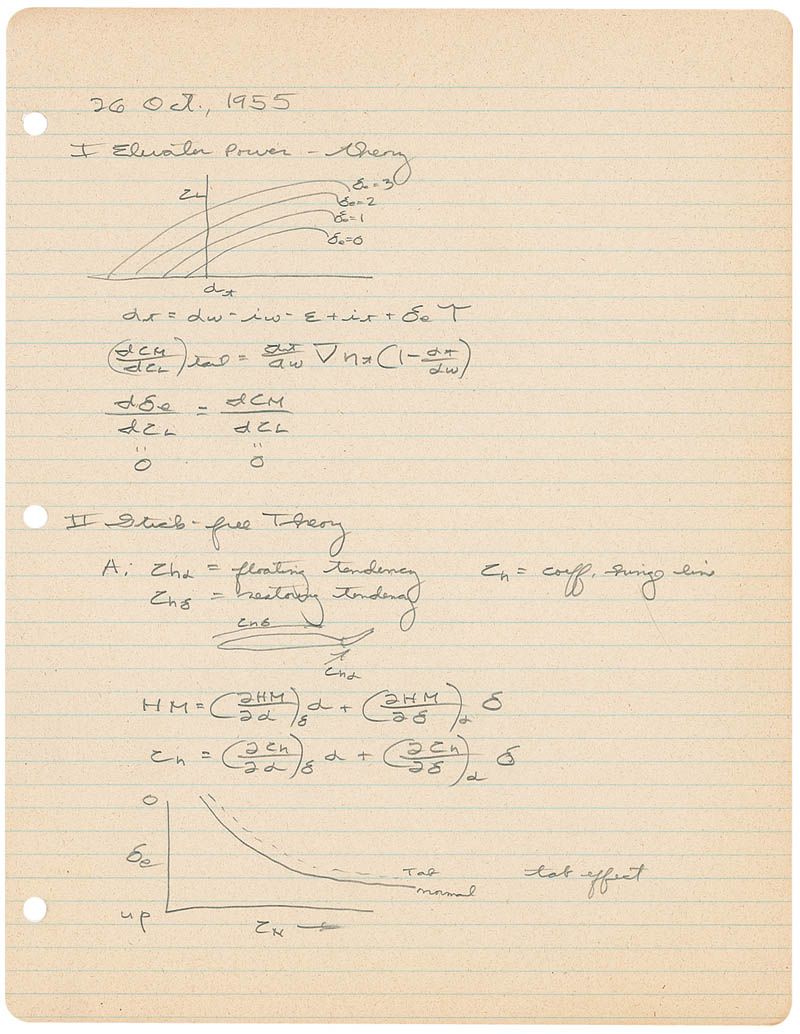 26 Oct., 1955
I Elevator Power - theory
CL
δe=3
δe=2
δe=1
δe=0
αt
αt = αw - iw - ε + it + δe τ
(dCM/dCL)tail = at/aw ∇ ηt (1 - dt/dw)
dδe/dCL = dCM/dCL
= =
0 0
II Stick-free Theory
A: Chα = floating tendency Ch = coeff. hinge line
Chδ = restoring tendency
Chδ
Chα
HM = (∂HM/∂α)δ α + (∂HM/∂δ)α δ
Ch = (∂Ch/∂α)δ α + (∂Ch/∂δ)α δ
0
δe
Tab
normal
tab effect
up